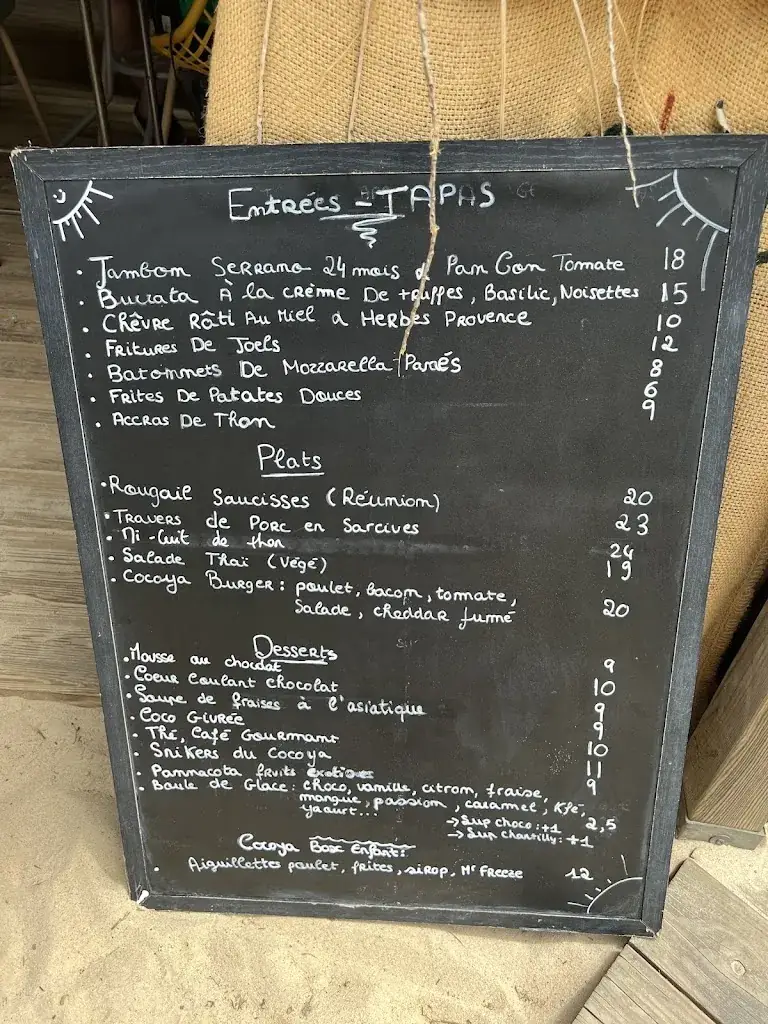 Entrées - TAPAS
• Jambon Serrano 24 mois & Pan Con Tomate 18
• Burrata À la crème De truffes, Basilic, Noisettes 15
• Chèvre Rôti Au Miel & Herbes Provence 10
• Fritures De Joels 12
• Batonnets De Mozzarella Panés 8
• Frites De Patates Douces 6
• Accras De Thon 9
Plats
• Rougail Saucisses (Réunion) 20
• Travers de Porc en Sarcives 23
• Mi-Cuit de thon 24
• Salade Thaï (Végé) 19
• Cocoya Burger : poulet, bacon, tomate,
Salade, cheddar fumé 20
Desserts
• Mousse au chocolat 9
• Coeur Coulant chocolat 10
• Soupe de fraises à l'asiatique 9
• Coco Givrée 9
• Thé, Café Gourmant 10
• Snikers du Cocoya 11
• Pannacota fruits exotiques 9
• Boule de Glace : choco, vanille, citron, fraise,
mangue, passion, caramel, Kfé,
yaourt... 2,5
→ Sup choco : +1
→ Sup chantilly : +1
Cocoya Box Enfant :
• Aiguillettes poulet, frites, sirop, Mr Freeze 12